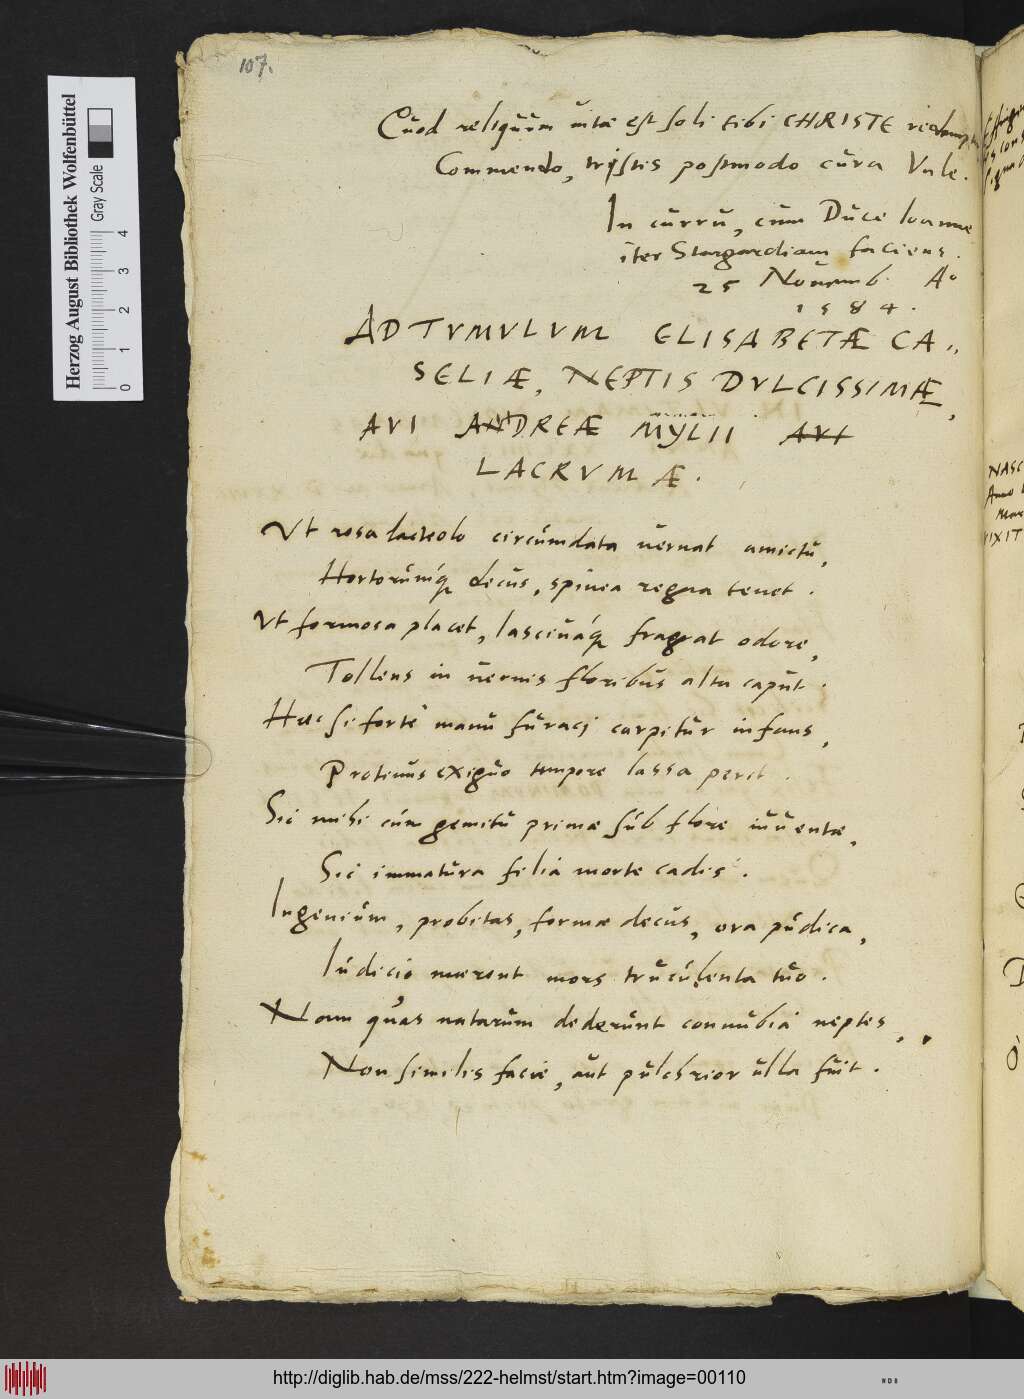 107.
Quod reliquum uitae est soli tibi CHRISTE redempt
Commendo, tristis postmodo cura Vale.
In curru, cum Duce Ioanne
iter Stargardiam faciens.
25 Nouemb. A°
1584.
AD TVMVLVM ELISABETÆ CA„
SELIÆ, NEPTIS DVLCISSIMÆ,
AVI ANDREÆ MYLII AVI
LACRVMÆ.
Vt rosa lacteolo circumdata uernat amictu,
Hortorumq́ decus, spinea regna tenet.
Vt formosa placet, lasciuaq́ fragrat odore,
Tollens in uernis floribus alta caput.
Haec si forte manu furacj carpitur infans,
Protinus exiguo tempore lassa perit.
Sic mihi cum gemitu primae sub flore iuuentae,
Sic immatura filia morte cadis.
Ingenium, probitas, formae decus, ora pudica,
Iudicio maerent mors truculenta tuo.
Nam quas natarum dederunt connubia neptes,
Non similis facie, aut pulchrior ulla fuit.
NASC
Anno
VIXIT
Herzog August Bibliothek Wolfenbüttel
Gray Scale
0 1 2 3 4
http://diglib.hab.de/mss/222-helmst/start.htm?image=00110